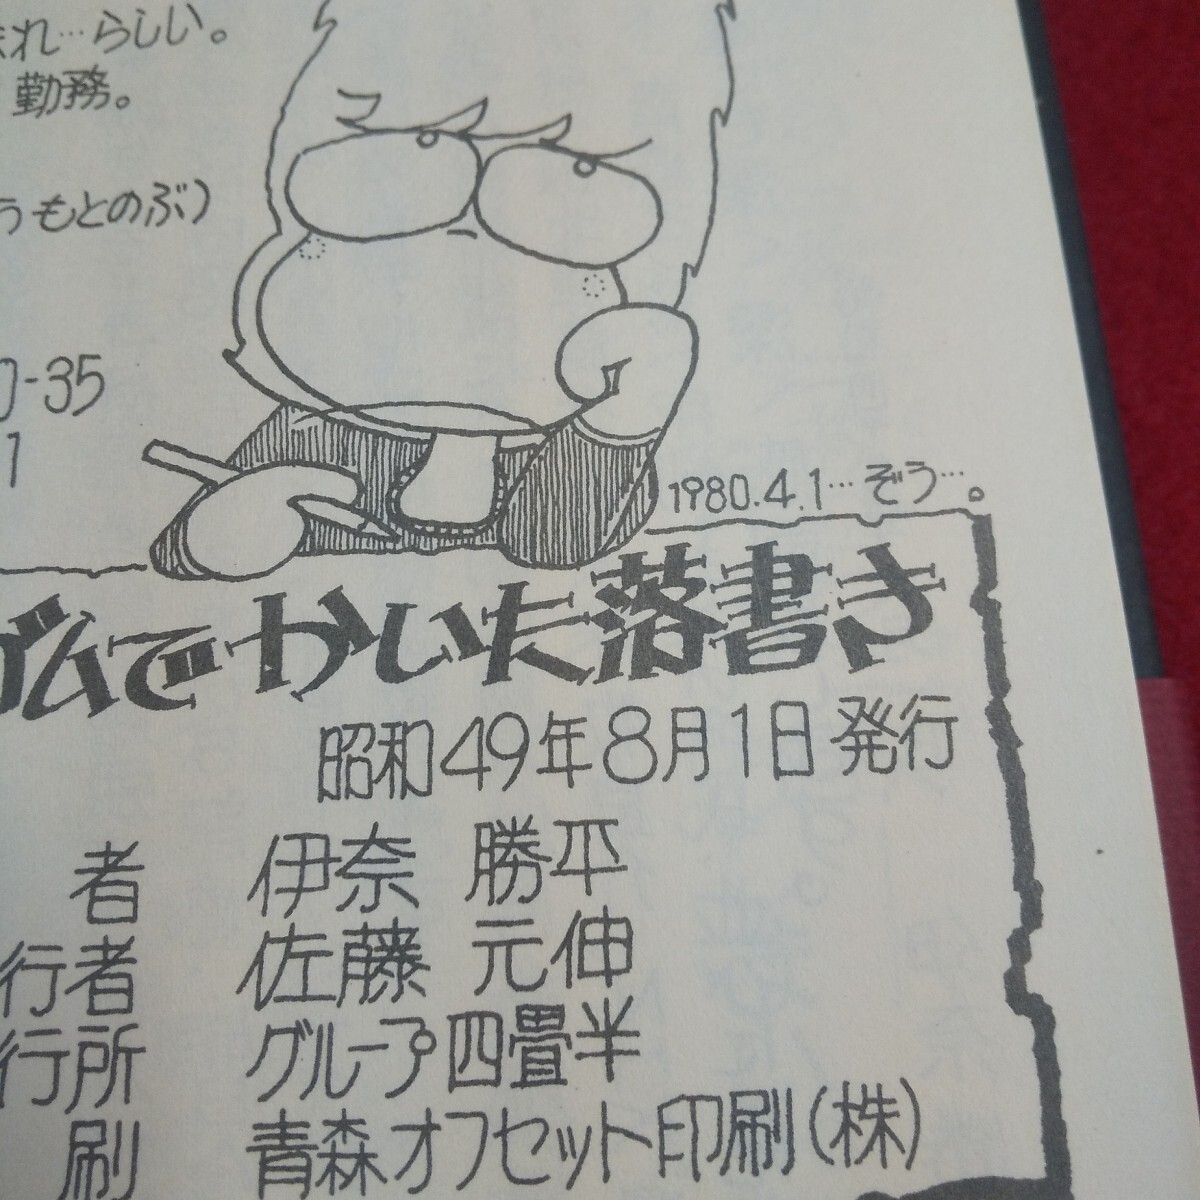 まれ…らしい。
勤務。
うもとのぶ)
-35
1
1980.4.1…ぞう…。
ゴムでかいた落書き
昭和49年8月1日発行
者 伊奈 勝平
行者 佐藤 元伸
行所 グループ四畳半
刷 青森オフセット印刷(株)